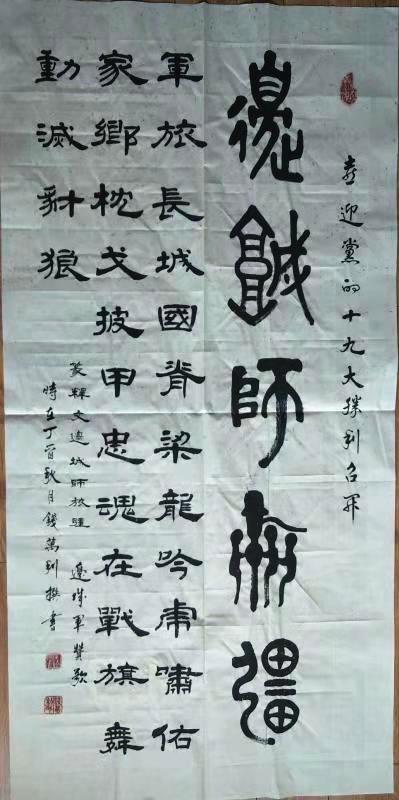 喜迎黨的十九大勝利召開
邊城師旅疆
軍旅長城國脊梁龍吟虎嘯佑
家鄉枕戈披甲忠魂在戰旗舞
動滅豺狼
篆釋文邊城師旅疆 邊城軍贊歌
時在丁酉秋月錢萬利撰書